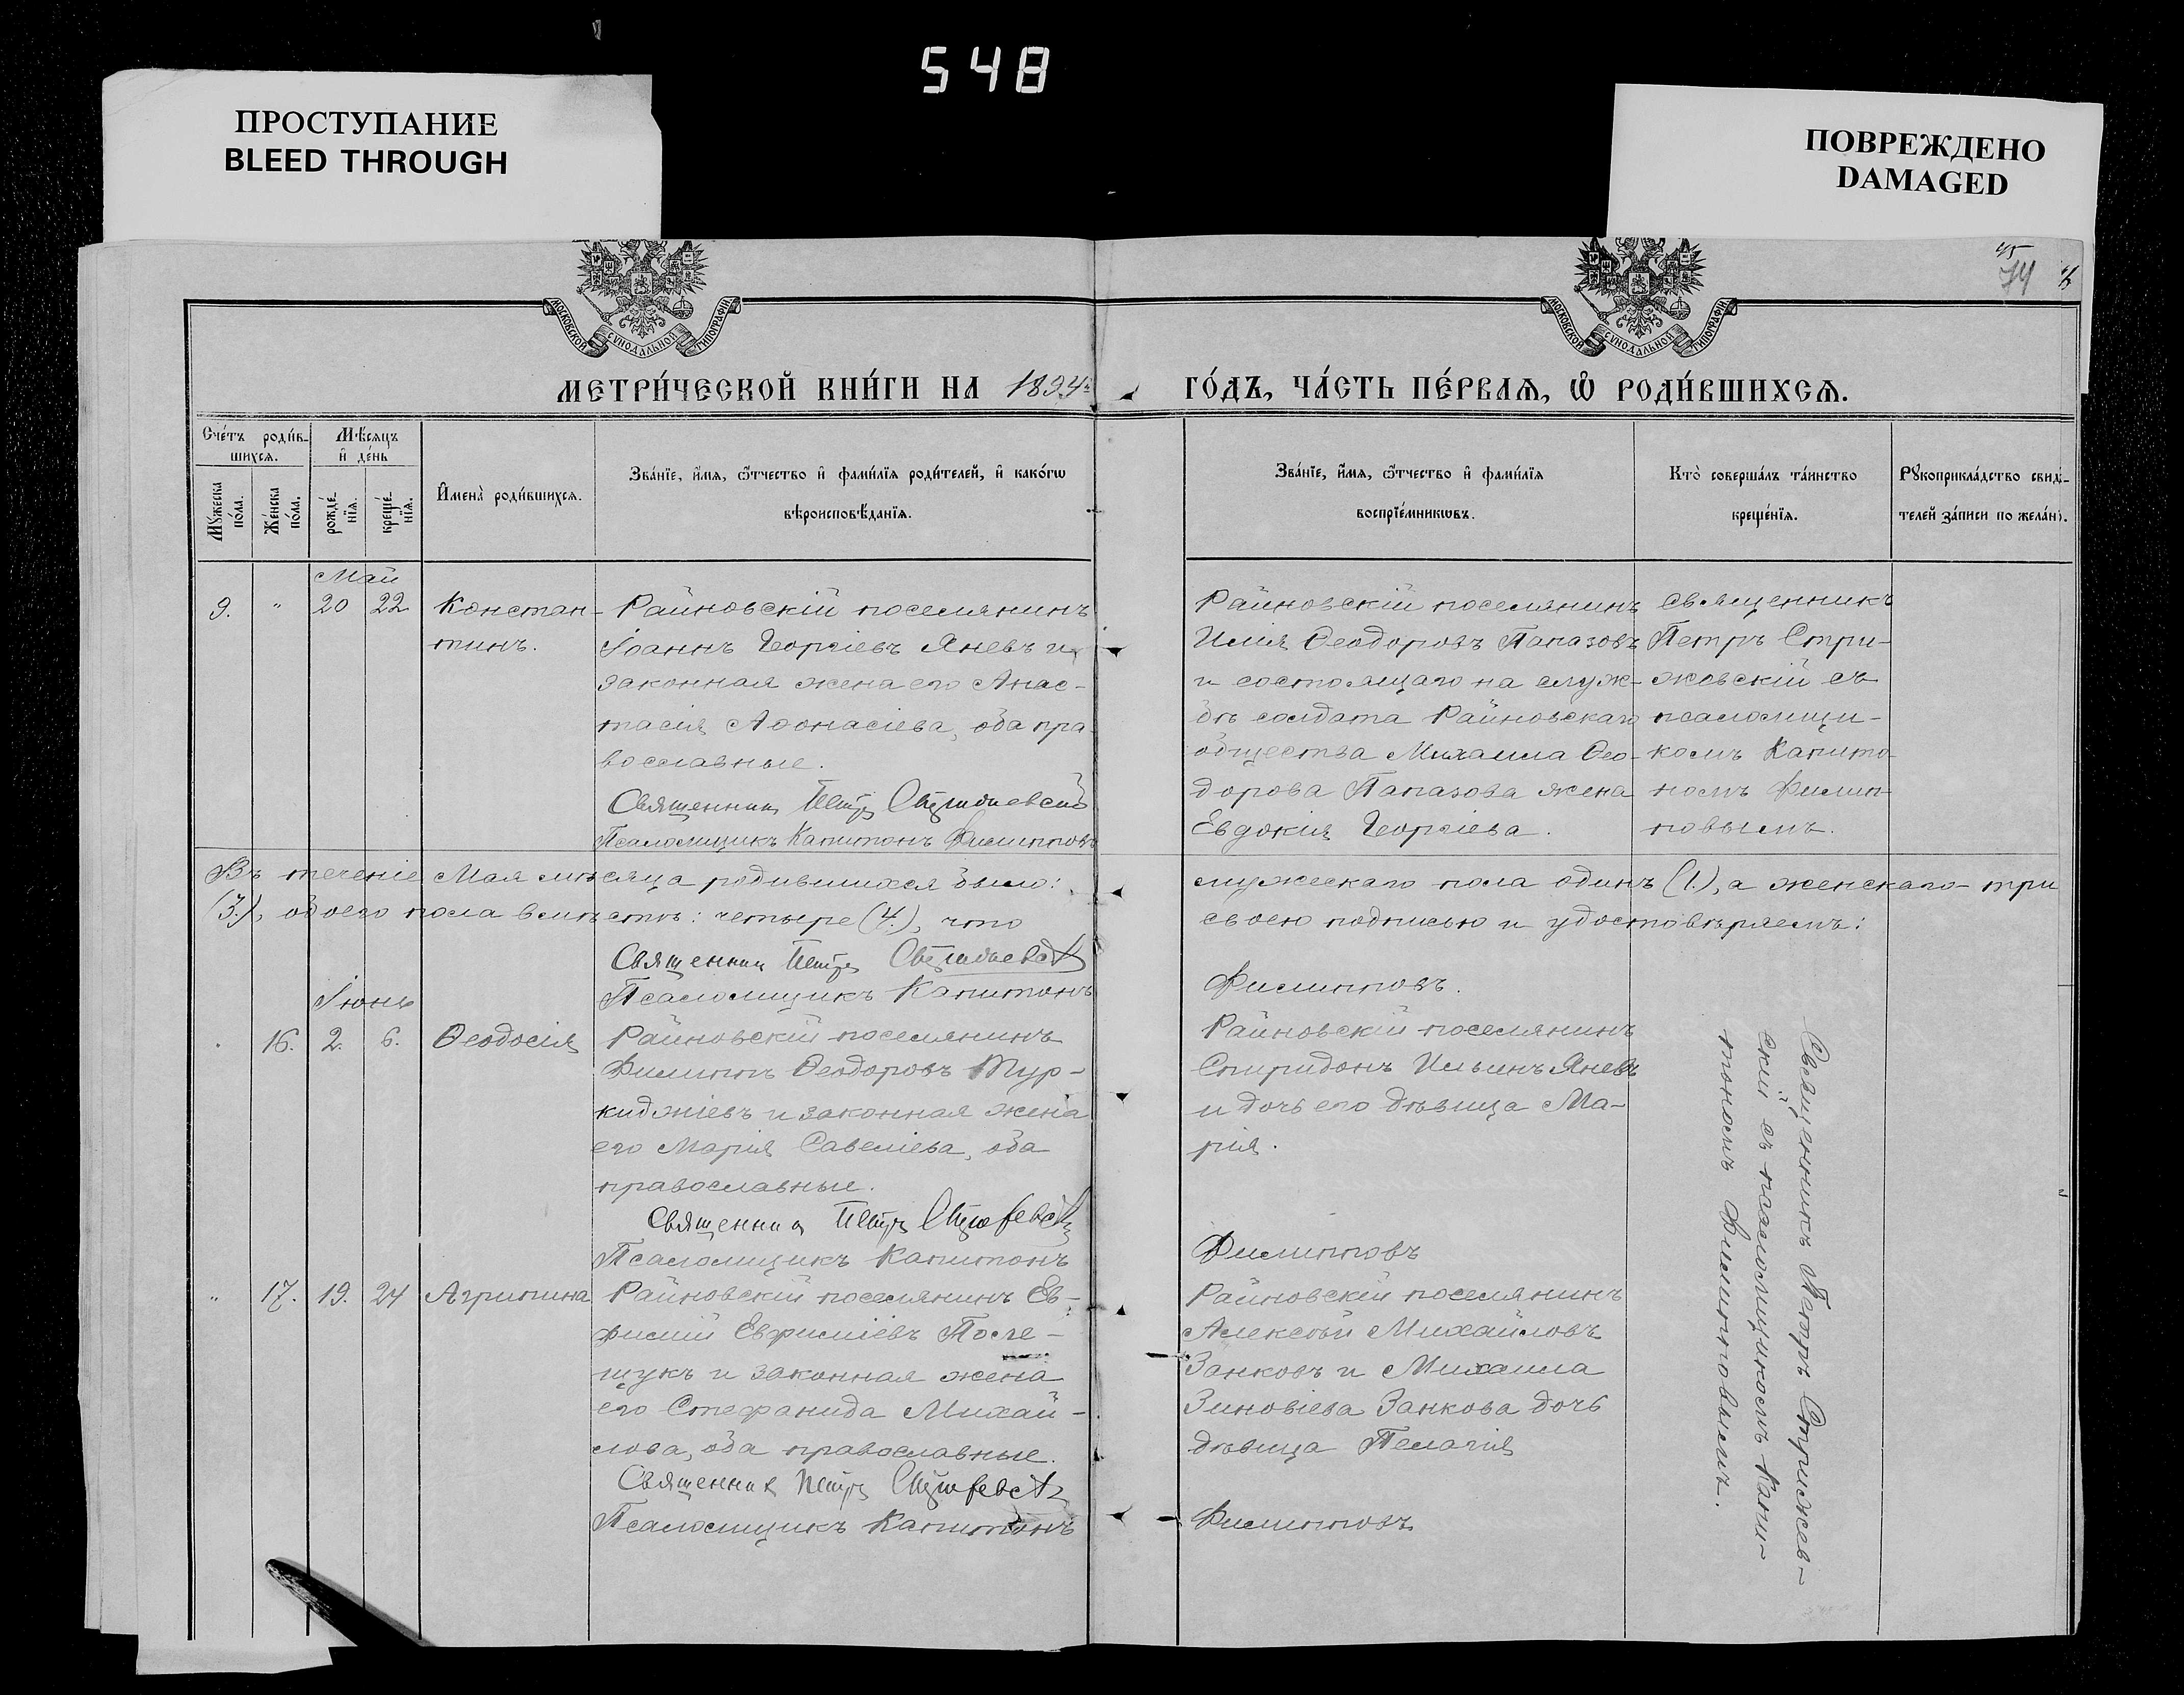 548
ПРОСТУПАНИЕ
BLEED THROUGH
ПОВРЕЖДЕНО
DAMAGED
МОСКОВСКОЙ СѴНОДАЛЬНОЙ ТИПОГРАФІИ
МОСКОВСКОЙ СѴНОДАЛЬНОЙ ТИПОГРАФІИ
45
74
МЕТРИ́ЧЕСКОЙ КНИ́ГИ НА 1894й
ГО́ДЪ, ЧА́СТЬ ПЕ́РВАѦ, Ѡ҆ РОДИ́ВШИХСѦ.
Сче́тъ роди́в-
шихсѧ.
Мꙋ́жеска по́ла.
Же́нска по́ла.
Мѣ́сѧцъ
и҆ де́нь
рожде́нїѧ.
креще́нїѧ.
И҆мена̀ роди́вшихсѧ.
Зва́нїе, и҆́мѧ, ѻ҆́тчество и҆ фами́лїѧ роди́телей, и҆ како́гѡ
вѣроисповѣ́данїѧ.
Зва́нїе, и҆́мѧ, ѻ҆́тчество и҆ фами́лїѧ
воспрїе́мникѡвъ.
Кто̀ соверша́лъ та́инство
креще́нїѧ.
Рꙋкоприкла́дство свидѣ-
телей за́писи по жела́н
Май
9. " 20 22 Констан-
тинъ.
Райновскій поселянинъ
Іоаннъ Георгіевъ Яневъ и
законная жена его Анас-
тасія Аѳонасіева, оба пра
вославные.
Священникъ Петръ Стрижевскій
Псаломщикъ Капитонъ Филипповъ
Райновскій поселянинъ
Илія Ѳеодоровъ Папазовъ
и состоящаго на служ-
бѣ солдата Райновскаго
общества Михаила Ѳео-
дорова Папазова жена
Евдокія Георгіева.
Священникъ
Петръ Стри-
жевскій съ
псаломщи-
комъ Капито-
номъ Филип-
повымъ.
Въ теченіе Мая мѣсяца родившихся было: мужескаго пола одинъ (1.), а женскаго - три
(3.), обоего пола вмѣстѣ: четыре (4.), что своею подписью и удостовѣряемъ:
Священникъ Петръ Стрижевскій
Псаломщикъ Капитонъ Филипповъ.
Іюнь
16. 2. 6. Ѳеодосія
Райновскій поселянинъ
Филиппъ Ѳеодоровъ Тур-
киджіевъ и законная жена
его Марія Савеліева, оба
православные.
Священникъ Петръ Стрижевскій
Псаломщикъ Капитонъ Филипповъ
Райновскій поселянинъ
Спиридонъ Ильинъ Яневъ
и дочь его дѣвица Ма-
рія.
" 17. 19. 24 Агрипина
Райновскій поселянинъ Ев-
фимій Евфиміевъ Поле-
щукъ и законная жена
его Стефанида Михай-
лова, оба православные.
Священникъ Петръ Стрижевскій
Псаломщикъ Капитонъ Филипповъ
Райновскій поселянинъ
Алексѣй Михайловъ
Занковъ и Михаила
Зиновіева Занкова дочь
дѣвица Пелагія
Священникъ Петръ Стрижев-
скій съ псаломщикомъ Капи-
тономъ Филипповымъ.